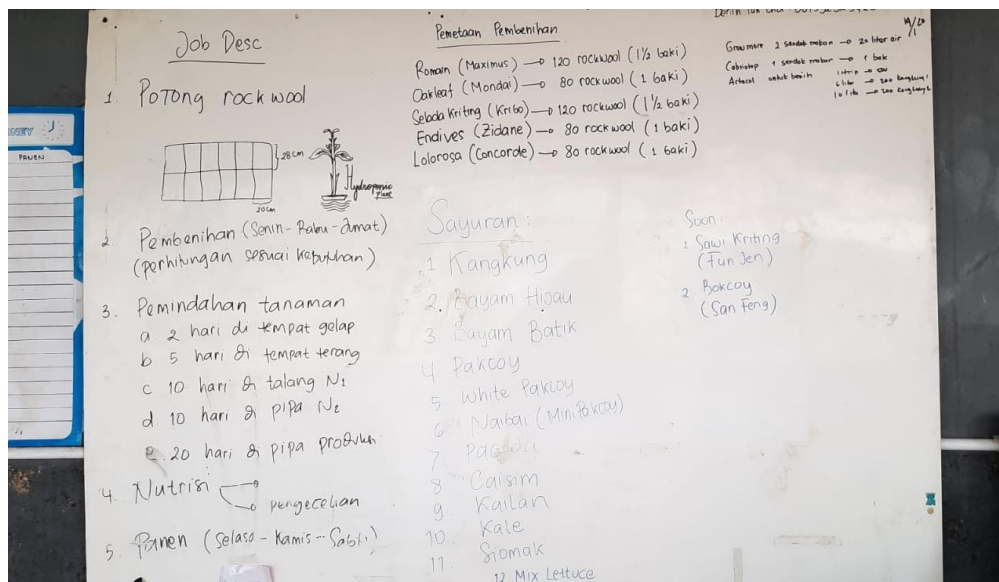 Job Desc
1. Potong rockwool
28 cm
20cm
Hydroponic
Plant
2 Pembenihan (Senin - Rabu - Jumat)
(perhitungan sesuai kebutuhan)
3. Pemindahan tanaman
a 2 hari di tempat gelap
b 5 hari di tempat terang
c. 10 hari di talang N1
d. 10 hari di pipa N2
e. 20 hari di pipa produksi
4. Nutrisi
pengecekan
5. Panen (Selasa - Kamis - Sabtu)
Pemetaan Pembenihan
Romain (Maximus) → 120 rockwool (1 1/2 baki)
Oakleaf (Mondai) → 80 rockwool (1 baki)
Selada Kriting (Kribo) → 120 rockwool (1 1/2 baki)
Endives (Zidane) → 80 rockwool (1 baki)
Lolorosa (Concorde) → 80 rockwool (1 baki)
Sayuran :
1 Kangkung
2. Bayam Hijau
3 Bayam Batik
4 Pakcoy
5. White Pakcoy
6 Naibai (Mini Pakcoy)
7 Pagoda
8 Caisim
9. Kailan
10. Kale
11. Siomak
12 Mix Lettuce
Soon :
1 Sawi Kriting
(Fun Jen)
2 Bokcoy
(San Feng)
Growmore 2 sendok makan → 20 liter air
1 sendok makan → 1 bak
untuk benih
PANEN